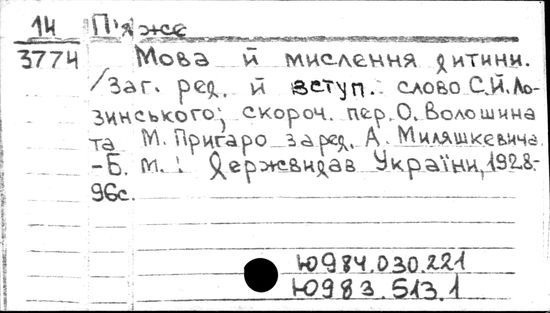 14 П'яже
3774 Мова й мислення дитини.
/Заг. ред. й вступ. слово С.Й. Ло-
зинського; скороч. пер. О. Волошина
та М. Пригаро за ред. А. Миляшкевича.
-Б. м.: Держвидав України, 1928.-
96с.
Ю984.030.221
Ю983.513.1